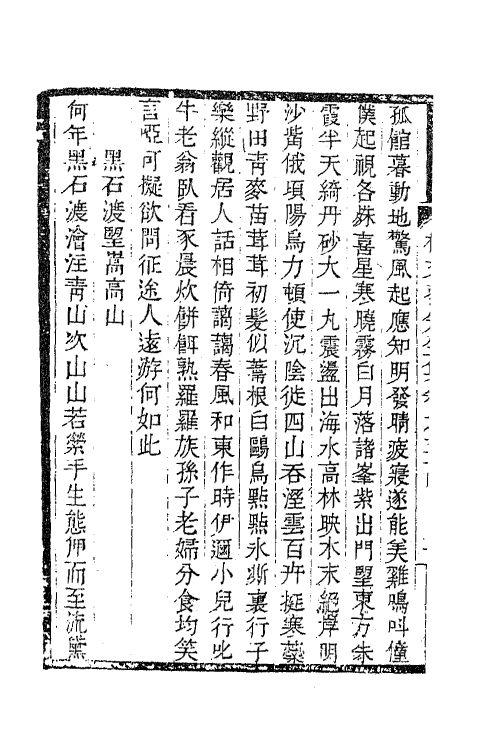 孤館暮動地驚風起應知明發晴疲寢遂能美雞鳴呌僮
僕起視各殊喜星寒曉霧白月落諸峯紫出門朢東方朱
霞半天綺丹砂大一丸震盪出海水高林映木末絕岸明
沙觜俄頃陽烏力頓使沉陰徙四山吞溼雲百卉挺寒蘂
野田靑麥苗茸茸初髮似蒿根白鷗鳥點點氷澌裏行子
樂縱觀居人話相倚藹藹春風和東作時伊邇小兒行叱
牛老翁臥看豕晨炊餅餌熟羅羅族孫子老婦分食均笑
言啞可擬欲問征途人遠游何如此
黑石渡朢嵩高山
何年黑石渡澮汪靑山次山山若縈手生態俾而至流黛